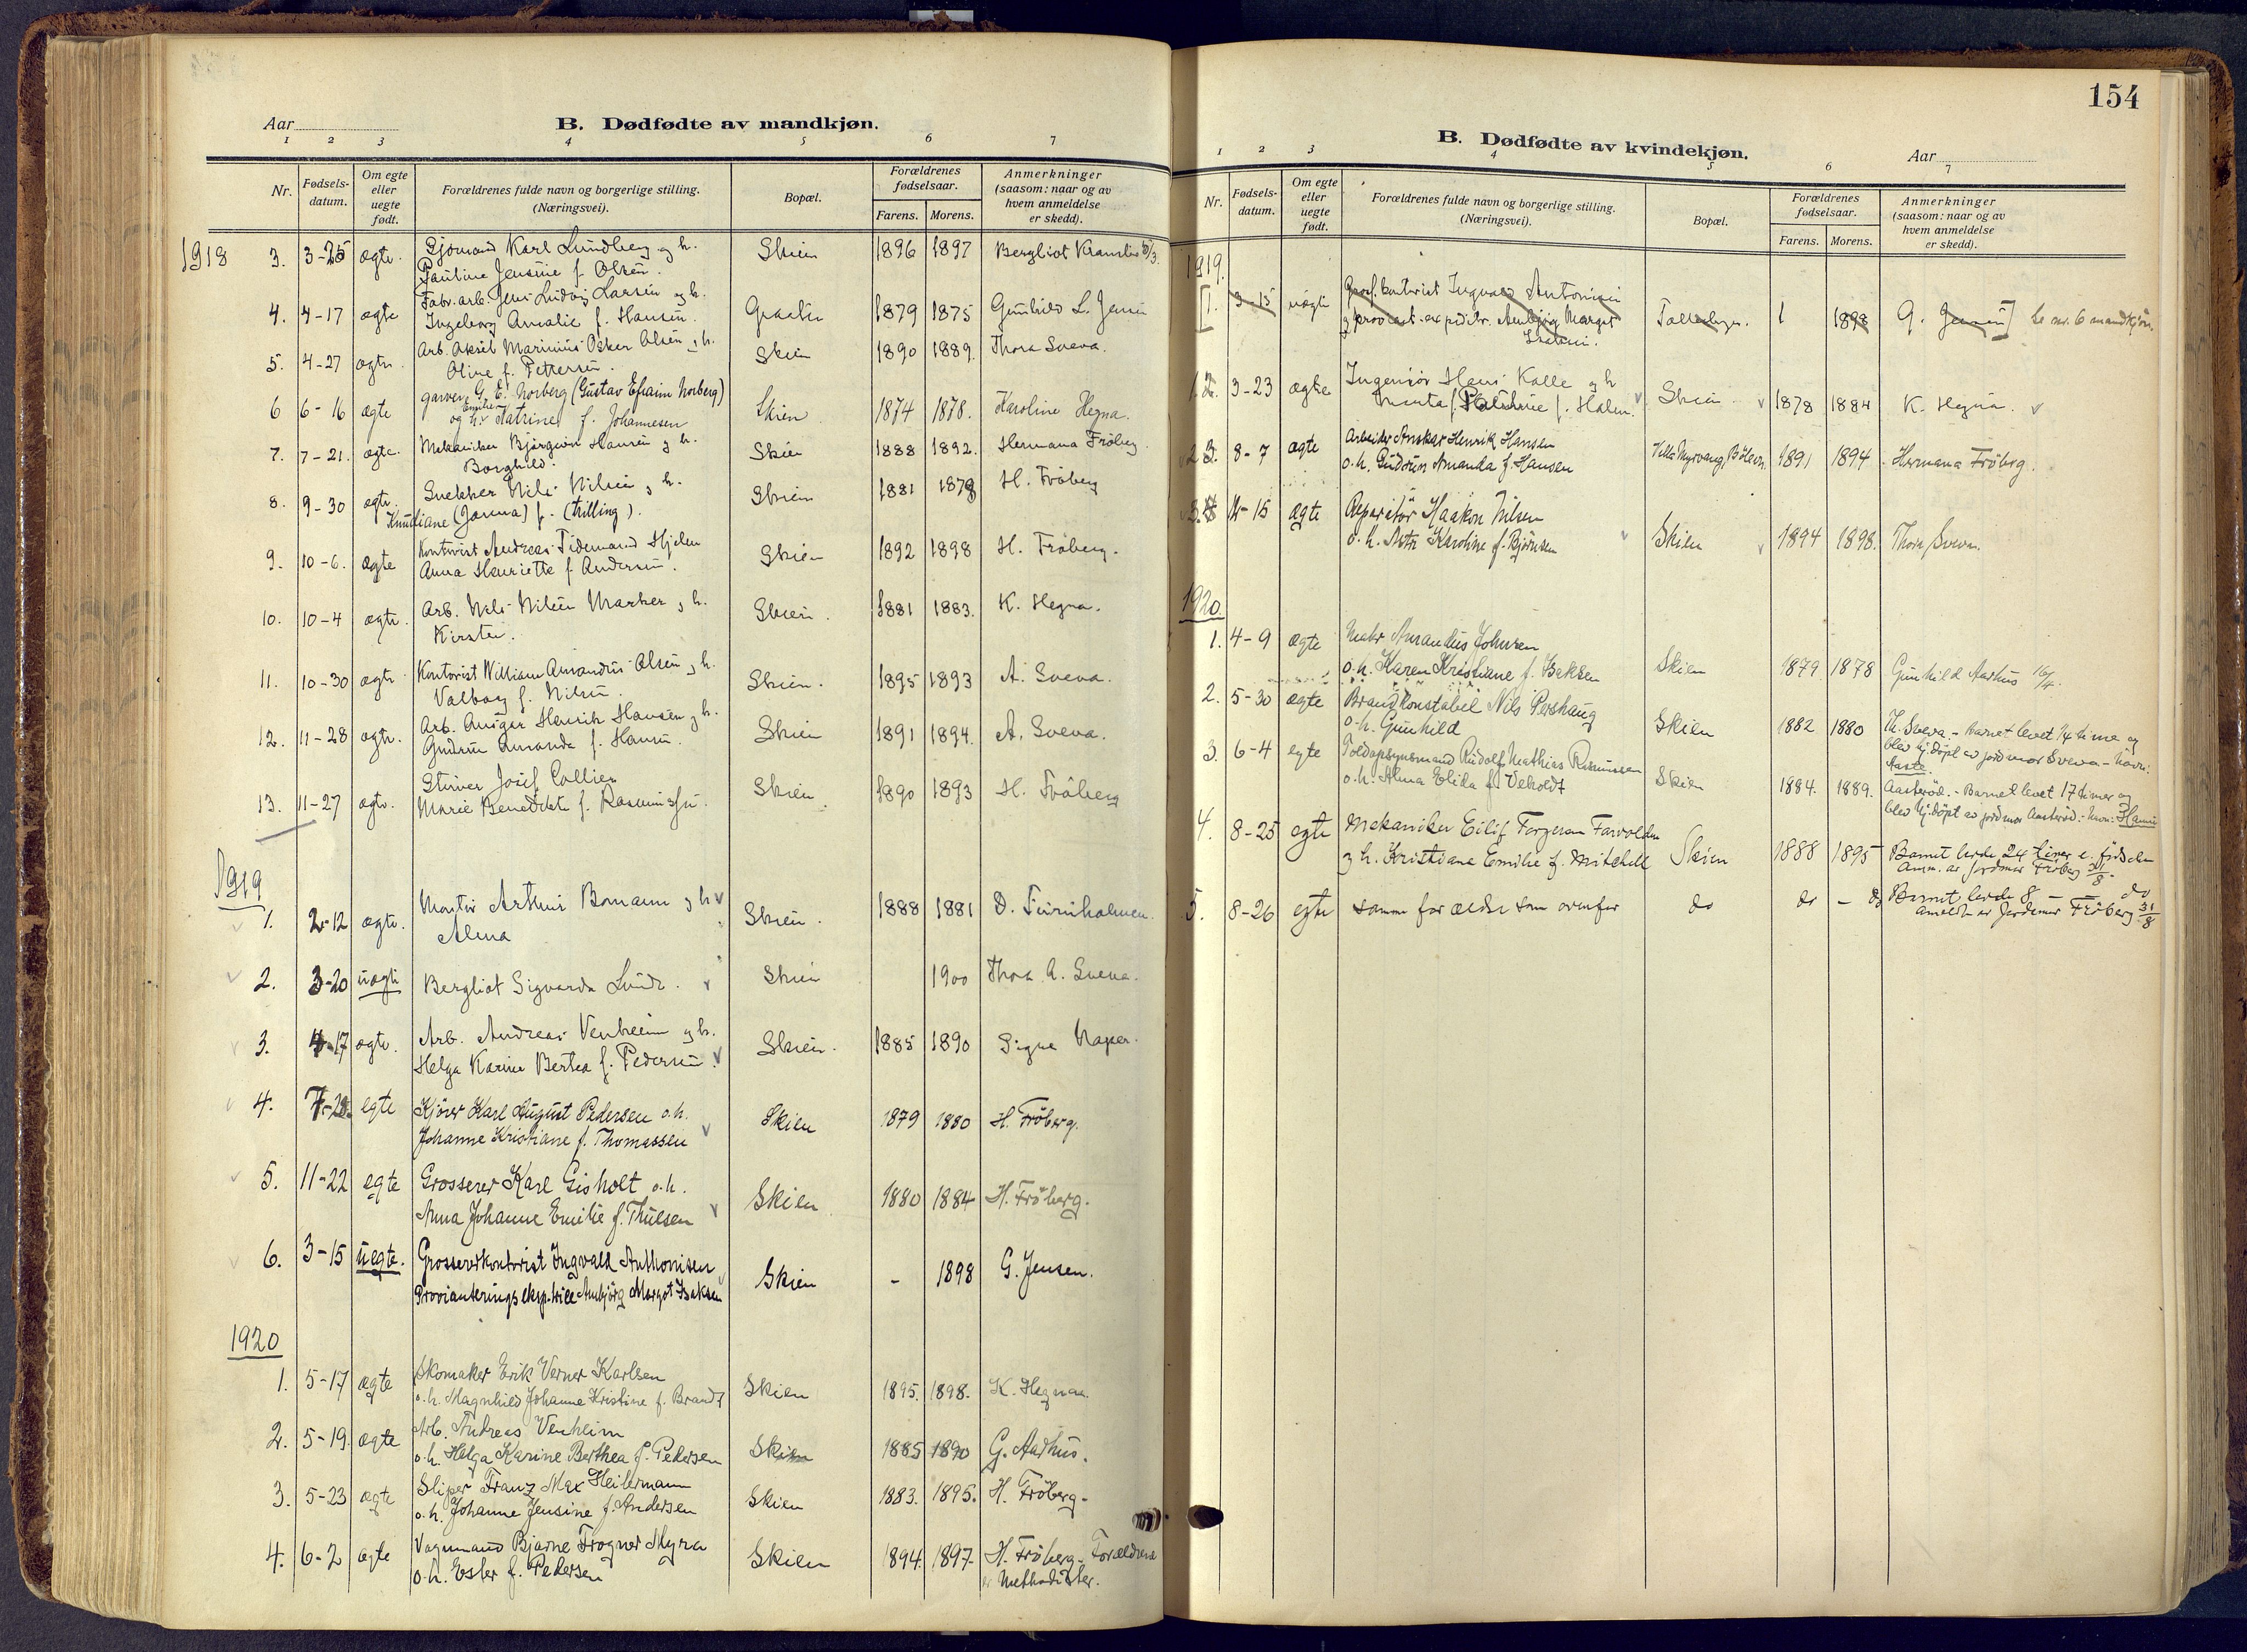 Aar
B. Dødfødte av mandkjøn.
1 2 3 4 5 6 7
Nr. Fødselsdatum. Om egte eller uegte født. Forældrenes fulde navn og borgerlige stilling. (Næringsvei). Bopæl. Forældrenes fødselsaar. Farens. Morens. Anmerkninger (saasom: naar og av hvem anmeldelse er skedd).
1918 3. 3-25 ægte. Sjömand Karl Lundberg og h. Skien 1896 1897 Bergliot
Pauline Jensine f. Olsen.
4. 4-17 ægte Fabr. arb. Jens Ludvig Larsen og h. 1879 1875 Gunhild L. Jensen
Ingeborg Amalie f. Hansen.
5. 4-27 ægte Arb. Aksel Marinius Osker Olsen, h. Skien 1890 1889. Thora Sveva.
Oline f. Pettersen.
6 6-16 ægte garver G. E. Norberg (Gustav Efraim Norberg) Skien 1874 1878. Karoline Hegna.
og h. Emilie Katrine f. Johannesen
7. 7-21. ægte. Mekaniker Björgvin Hansen og h. Skien 1888 1892. Hermana Fröberg
Borghild.
8. 9-30 ægte. Snekker Nils Nilsen og h. Skien 1881 1878 H. Fröberg
Knudiane (Janna) f. (trilling).
9. 10-6. ægte Kontorist Andreas Tidemand Hjelen Skien 1892 1898 H. Fröberg.
Anna Henriette f. Andersen.
10. 10-4 ægte. Arb. Nils Nilsen Marker og h. Skien. 1881 1883. K. Hegna.
Kirsten.
11. 10-30 ægte Kontorist William Amandus Olsen og h. Skien. 1895 1893 A. Sveva.
Valborg f. Nilsen.
12. 11-28 ægte. Arb. Ansgar Henrik Hansen og h. Skien 1891 1894. A. Sveva.
Gudrun Amanda f. Hansen.
13. 11-27 ægte. Stuver Josef Collier Skien 1890 1893 H. Fröberg
Marie Benedikte f. Rasmussen.
1919
1. 2-12 ægte. Montör Arthur Bomann og h Skien. 1888 1881 D. Furuholmen.
Alma
2. 3-20 uægte Bergliot Sigvarda Lunde. Skien 1900 Thora A. Sveva.
3. 4-17 ægte. Arb. Andreas Venheim og h. Skien. 1885 1890 Signe Naper.
Helga Karine Bertea f. Pedersen.
4. 7-28. egte Kjörer Karl August Pedersen o.h. Skien 1879 1880 H. Fröberg.
Johanne Kristiane f. Thomassen
5. 11-22 egte Grosserer Karl Gisholt o.h. Skien 1880 1884 H. Fröberg.
Anna Johanne Emilie f. Thulsen
6. 3-15 uegte. Grossererkontorist Ingvald Anthonisen Skien - 1898 G. Jensen.
Provianteringseksp.trice Anbjörg Margot Isaksen
1920
1. 5-17 ægte Skomaker Erik Verner Karlsen Skien 1895. 1898. K. Hegna.
o.h. Magnhild Johanne Kristine f. Brandt
2. 5-19. ægte Arb. Andreas Venheim Skien 1885 1890 G. Aarhus.
o.h. Helga Karine Berthea f. Pedersen
3. 5-23 ægte Sliper Franz Max Heilermann Skien 1883. 1895. H. Fröberg.
o.h. Johanne Jensine f. Andersen
4. 6-2 ægte Vognmand Bjarne Frogner Myra Skien 1894. 1897. H. Fröberg. Forældrene
o.h. Ester f. Pedersen er Methodister.
154
B. Dødfødte av kvindekjøn.
Aar
1 2 3 4 5 6 7
Nr. Fødselsdatum. Om egte eller uegte født. Forældrenes fulde navn og borgerlige stilling. (Næringsvei). Bopæl. Forældrenes fødselsaar. Farens. Morens. Anmerkninger (saasom: naar og av hvem anmeldelse er skedd).
1919.
[1. 3-15 uægte Gross. kontorist Ingvald Antonisen 1 1898 G. Jensen] Se nr. 6 mandkjön.
og proviant. expeditr. Anbjörg Margot
Isaksen.
1. 2. 3-23 ægte Ingeniör Hans Kalle og h Skien 1878 1884 K. Hegna.
f. Holm.
2 3. 8-7 ægte Arbeider Anskar Henrik Hansen Villa Myrvang, Bölevn. 1891 1894 Hermana Fröberg.
o.h. Gudrun Amanda f. Hansen
3. 4 11-15 ægte Reparatör Haakon Nilsen Skien 1894 1898. Thora Sveva.
o.h. Asta Karoline f. Björnsen
1920.
1. 4-9 ægte Amandus Johnsen Skien 1879 1878 Gunhild Aarhus 16/4.
o.h. Karen Kristiane f. Isaksen
2. 5-30 ægte Brandkonstabel Nils Pershaug Skien 1882 1880 Th. Sveva. - Barnet levet 14 time og
o.h. Gunhild blev hj.döpt av jordmor Sveva - navn:
Aaste.
3. 6-4 egte Toldopsynsmand Rudolf Mathias Rasmussen Skien 1884. 1889. Aasteröd. - Barnet levet 17 timer og
o.h. Alma Elida f. Veholdt blev hj.döpt av jordmor Aasteröd.: navn: Hanne
4. 8-25 egte Mekaniker Eilif Torgersen Farvolden Skien 1888 1895 Barnet levde 24 timer e. fødselen
og h. Kristiane Emilie f. Mitchell Anm. av Jordmor Fröberg 31/8.
5. 8-26 egte samme forældre som ovenfor do do - do Barnet levde 8 — do
Anmeldt av Jordemor Fröberg 31/8